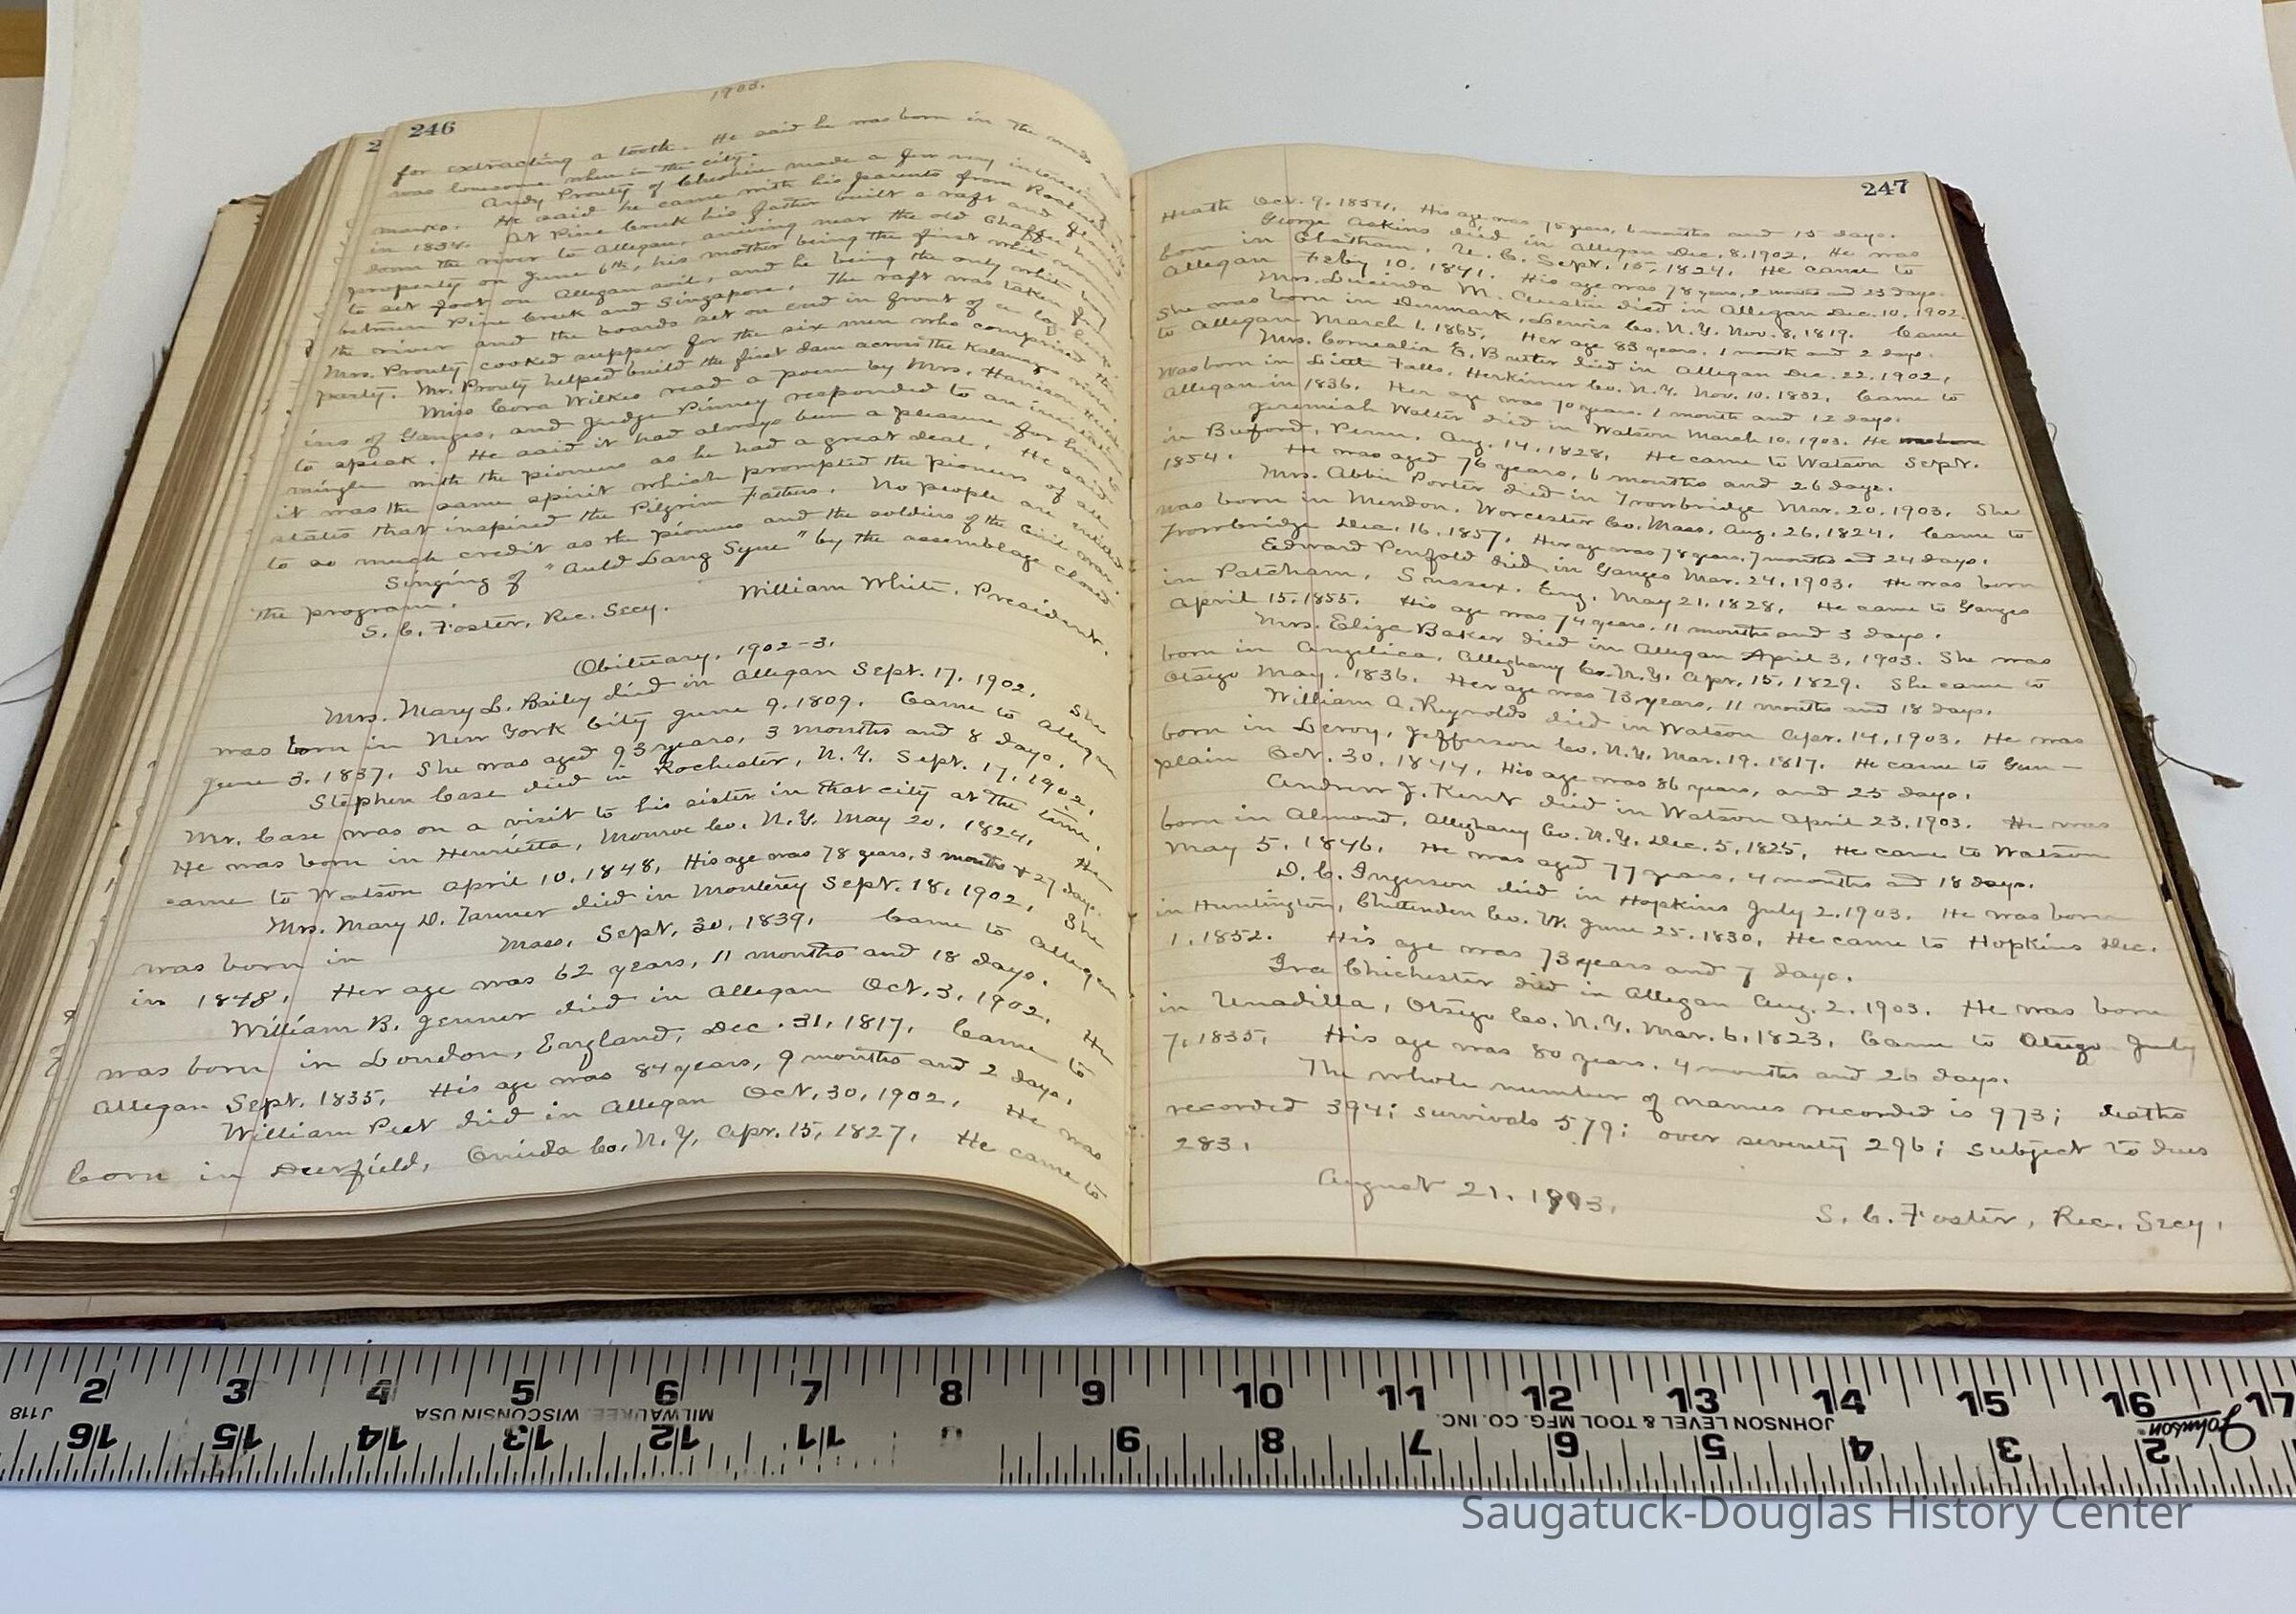 1903.
246
for extracting a tooth. He said he was born in the woods and
was lonesome when in the city.
Andy Prouty of Cheshire made a few very interesting
marks. He said he came with his parents from
in 1834. At Pine Creek his father built a raft and
down the river to Allegan, arriving near the old Chaffee
property on June 6th, his mother being the first white woman
to set foot on Allegan soil, and he being the only white boy
between Pine Creek and Singapore. The raft was taken
the river and the boards set on end in front of a log
Mrs. Prouty cooked supper for the six men who comprised the
party. Mr. Prouty helped built the first dam across the Kalamazoo river.
Miss Cora Wilkes read a poem by Mrs. Harrison
ins of Ganges, and Judge Pinney responded to an invitation
to speak. He said it had always been a pleasure for him to
mingle with the pioneers as he had a great deal. He said
it was the same spirit which prompted the pioneers of all
states that inspired the Pilgrim Fathers. No people are entitled
to so much credit as the pioneers and the soldiers of the Civil war.
Singing of "Auld Lang Syne" by the assemblage closed
the program.
William White, President.
S. C. Foster, Rec. Secy.
Obituary, 1902-3.
Mrs. Mary L. Bailey died in Allegan Sept. 17, 1902. She
was born in New York City June 9, 1809. Came to Allegan
June 3, 1837. She was aged 93 years, 3 months and 8 days.
Stephen Case died in Rochester, N. Y. Sept. 17, 1902.
Mr. Case was on a visit to his sister in that city at the time.
He was born in Henrietta, Monroe Co. N. Y. May 20, 1824. He
came to Watson April 10, 1848. His age was 78 years, 3 months & 27 days.
Mrs. Mary D. Tanner died in Monterey Sept. 18, 1902. She
was born in Mass. Sept. 30, 1839. Came to Allegan
in 1848. Her age was 62 years, 11 months and 18 days.
William B. Jenner died in Allegan Oct. 3, 1902. He
was born in London, England, Dec. 31, 1817. Came to
Allegan Sept. 1835. His age was 84 years, 9 months and 2 days.
William Peet died in Allegan Oct. 30, 1902. He was
born in Deerfield, Oneida Co. N. Y. Apr. 15, 1827. He came to
247
Heath Oct. 9, 1854. His age was 75 years, 6 months and 15 days.
George Askins died in Allegan Dec. 8, 1902. He was
born in Chatham, U. C. Sept. 15, 1824. He came to
Allegan Feby 10, 1841. His age was 78 years, 2 months and 23 days.
Mrs. Lucinda M. Austin died in Allegan Dec. 10, 1902.
She was born in Denmark, Lewis Co. N. Y. Nov. 8, 1819. Came
to Allegan March 1, 1865. Her age 83 years, 1 month and 2 days.
Mrs. Cornealia E. Butler died in Allegan Dec. 22, 1902,
was born in Little Falls, Herkimer Co. N. Y. Nov. 10, 1832. Came to
Allegan in 1836. Her age was 70 years, 1 month and 12 days.
Jeremiah Walter died in Watson March 10, 1903. He was born
in Buford, Penn. Aug. 14, 1828. He came to Watson Sept.
1854. He was aged 76 years, 6 months and 26 days.
Mrs. Abbie Porter died in Trowbridge Mar. 20, 1903. She
was born in Mendon, Worcester Co. Mass. Aug. 26, 1824. Came to
Trowbridge Dec. 16, 1857. Her age was 78 years, 7 months and 24 days.
Edward Penfold died in Ganges Mar. 24, 1903. He was born
in Patcham, Sussex, Eng. May 21, 1828. He came to Ganges
April 15, 1855. His age was 74 years, 11 months and 3 days.
Mrs. Eliza Baker died in Allegan April 3, 1903. She was
born in Angelica, Alleghany Co. N. Y. Apr. 15, 1829. She came to
Otsego May, 1836. Her age was 73 years, 11 months and 18 days.
William A. Reynolds died in Watson Apr. 14, 1903. He was
born in Leroy, Jefferson Co. N. Y. Mar. 19, 1817. He came to Gun-
plain Oct. 30, 1844. His age was 86 years, and 25 days.
Andrew J. Kent died in Watson April 23, 1903. He was
born in Almond, Alleghany Co. N. Y. Dec. 5, 1825. He came to Watson
May 5, 1846. He was aged 77 years, 4 months and 18 days.
D. C. Ingerson died in Hopkins July 2, 1903. He was born
in Huntington, Chittenden Co. Vt. June 25, 1830. He came to Hopkins Dec.
1, 1852. His age was 73 years and 7 days.
Ira Chichester died in Allegan Aug. 2, 1903. He was born
in Unadilla, Otsego Co. N. Y. Mar. 6, 1823. Came to Otsego July
7, 1835. His age was 80 years, 4 months and 26 days.
The whole number of names recorded is 973; deaths
recorded 394; survivals 579; over seventy 296; subject to dues
283.
August 21, 1903.
S. C. Foster, Rec. Secy.
2 3 4 5 6 7 8 9 10 11 12 13 14 15 16 17
J118 MILWAUKEE, WISCONSIN USA JOHNSON LEVEL & TOOL MFG. CO. INC. Johnson
16 15 14 13 12 11 9 8 7 6 5 4 3 2
Saugatuck-Douglas History Center